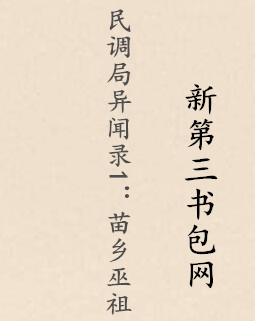 民调局异闻录1：苗乡巫祖
新第三书包网